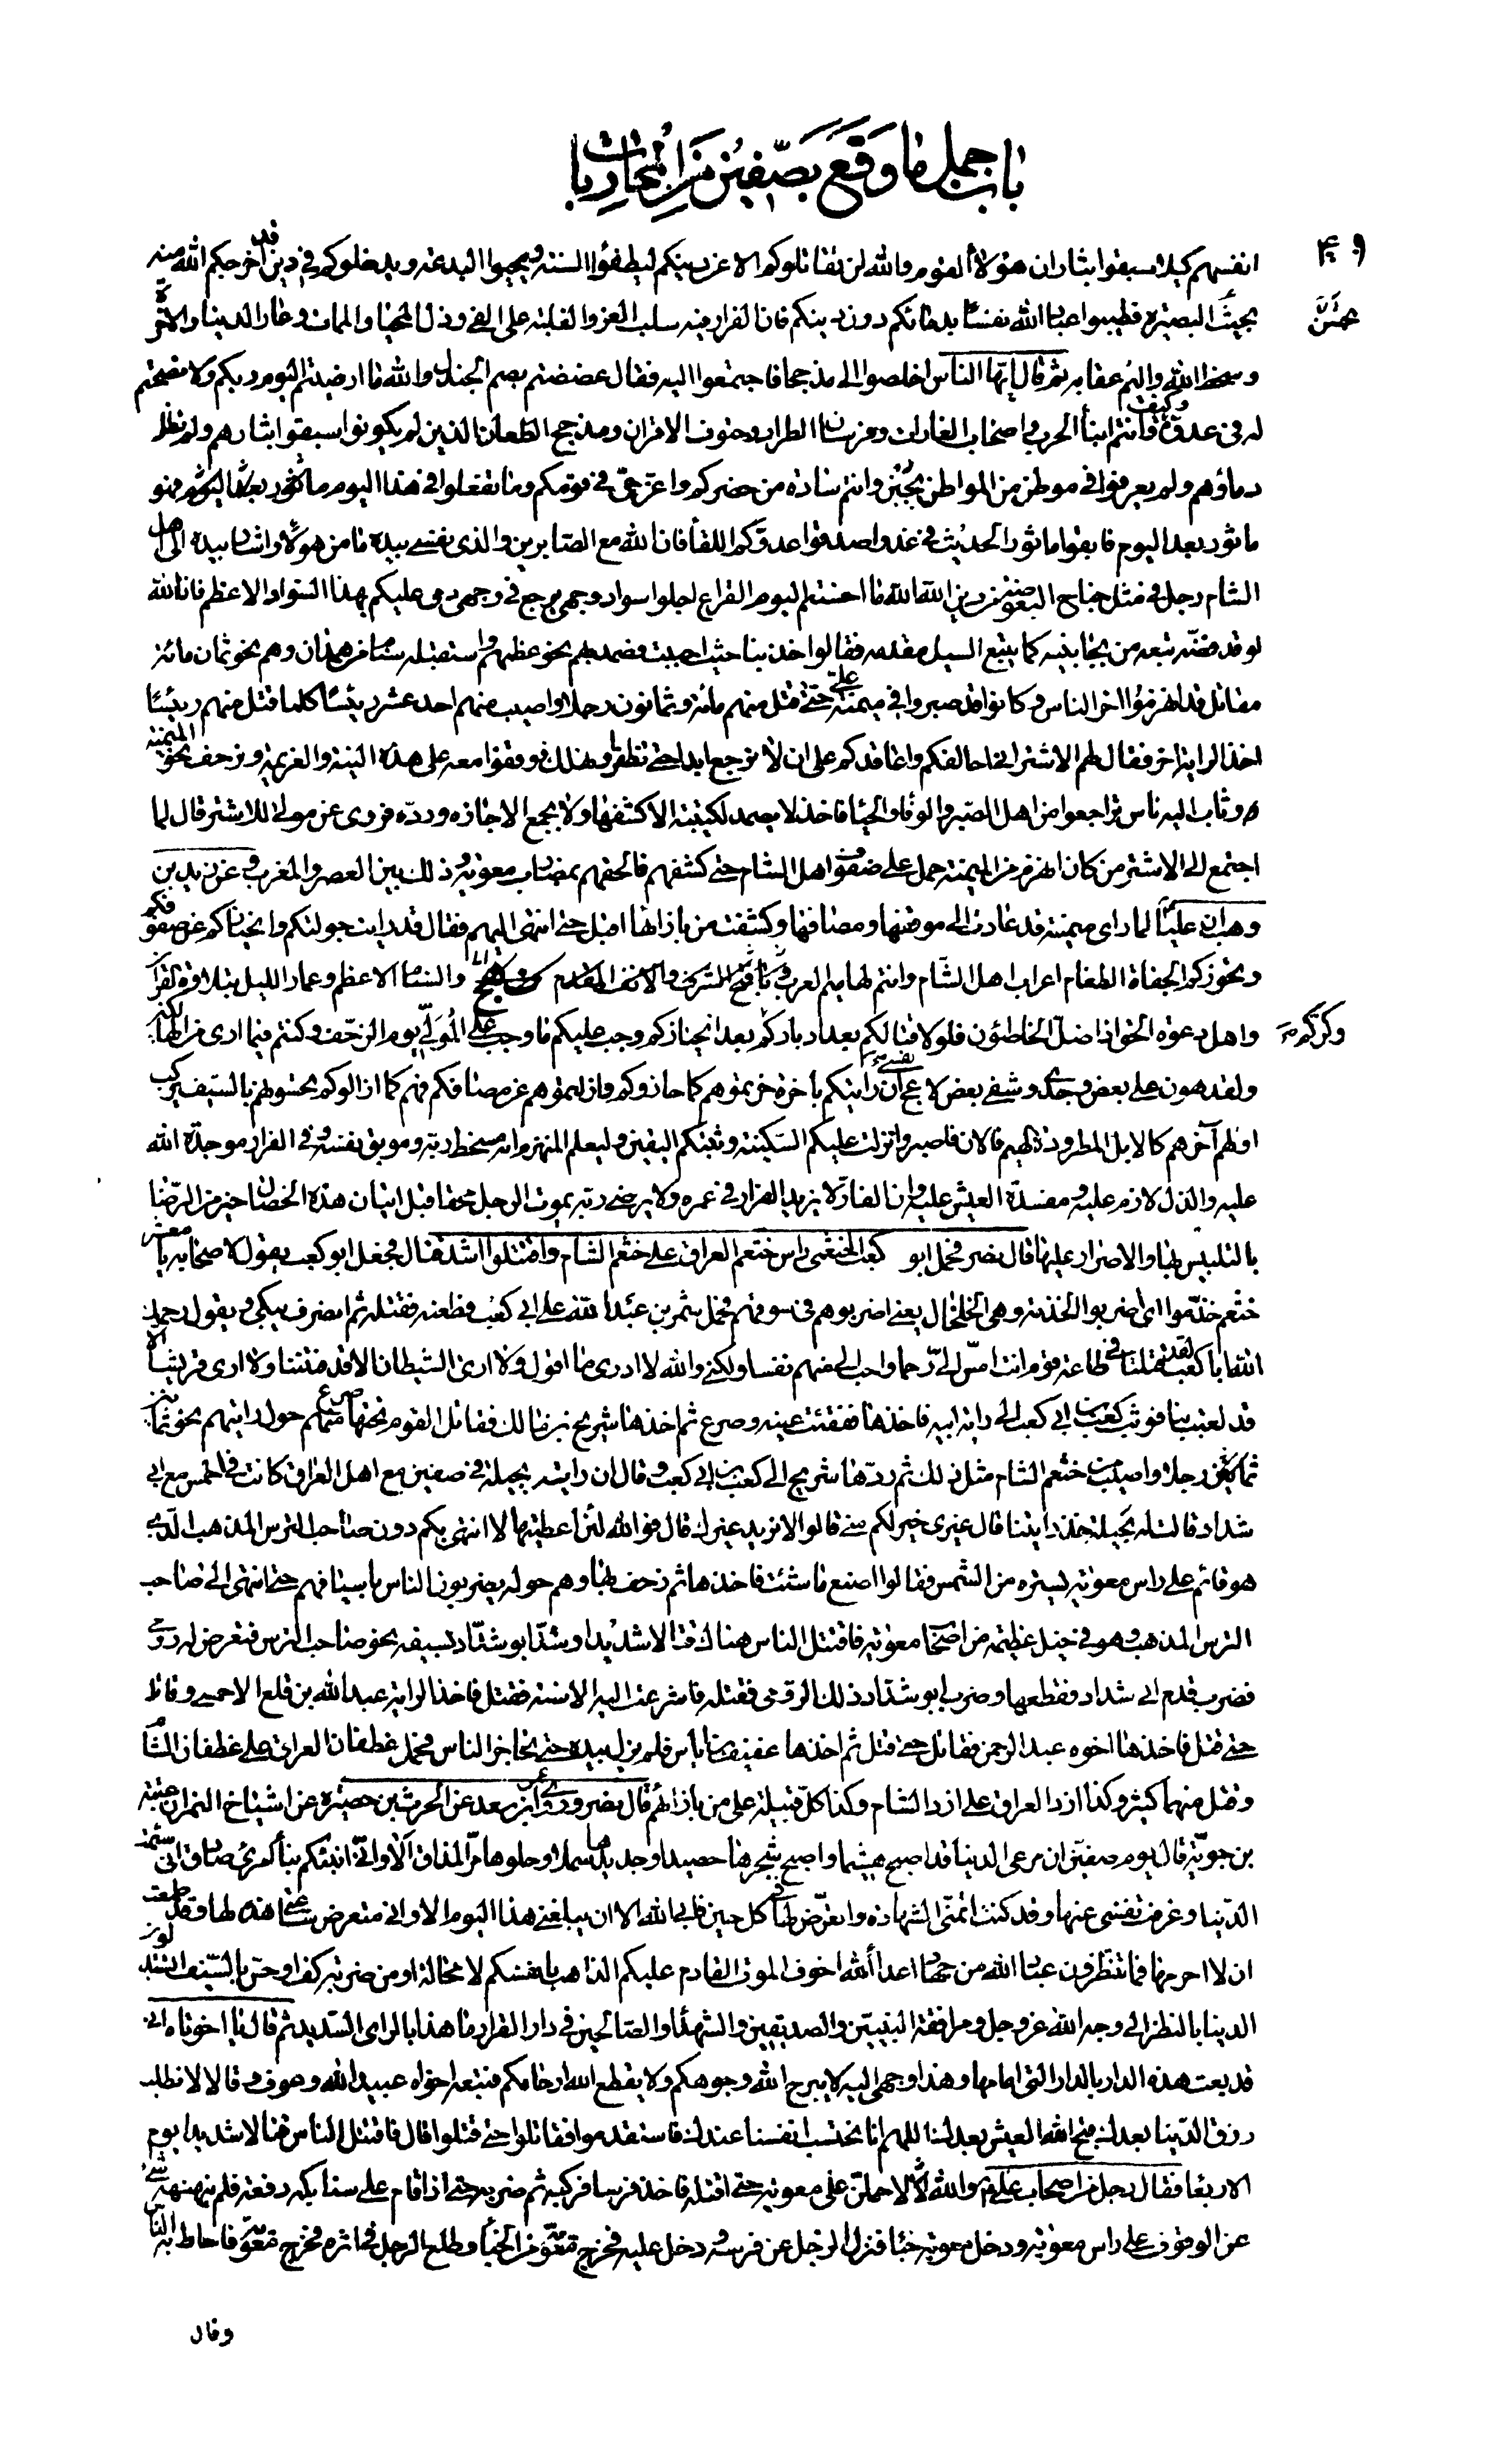 باب جمل ما وقع بصفين من المحاربات
۴۹۰
انفسهم كيلا سبقوا بثار ان هؤلاء القوم والله لن يقاتلوكم الا عن دينكم ليطفؤا السنة ويحيوا البدعة ويدخلوكم في دين قد اخرجكم الله منه
بحسن البصيرة فطيبوا عباد الله نفسا بدمائكم دون دينكم فان الفرار فيه سلب العز والغلبة على الفئ وذل المحيا والممات وعار الدنيا والاخرة
وسخط الله واليم عقابه ثم قال ايها الناس اخلصوا الى مذحجا فاجتمعوا اليه فقال عضضتم بصم الجندل والله ما ارضيتم اليوم ربكم ولا نصحتم
له في عدوه وكيف وانتم ابناء الحرب واصحاب الغارات وفرسان الطراد وحتوف الاقران ومذحج الطعان الذين لم يكونوا سبقوا بثارهم ولم تطل
دماؤهم ولم يعرفوا في موطن من المواطن بجبن وانتم سادة من حضركم واعز حي في قومكم وما تفعلوا في هذا اليوم ماثور بعد اليوم فهو
ماثور بعد اليوم فابقوا ماثور الحديث في غد واصدقوا عدوكم اللقاء فان الله مع الصابرين والذي نفسي بيده ما من هؤلاء واشار بيده الى اهل
الشام رجل في مثل جناح البعوضة من دين الله لله ما احسنتم اليوم القراع اجلوا سواد وجهي يرجع في وجهي دمي عليكم بهذا السواد الاعظم فان الله
لو قد فضه تبعه من بجانبيه كما يتبع السيل مقدمه فقالوا خذ بنا حيث احببت فصمد بهم نحو عظمهم واستقبله سنام من همدان وهم نحو ثمان مائة
مقاتل قد انهزموا اخر الناس وكانوا قد صبروا في ميمنة علي حتى قتل منهم مائة وثمانون رجلا واصيب منهم احد عشر رئيسا كلما قتل منهم رئيسا
اخذ الراية اخر فقال لهم الاشتر اني احالفكم واعاقدكم على ان لا نرجع ابدا حتى نظفر او نهلك فوقفوا معه على هذه النية والعزيمة وزحف نحو الميمنة
وثاب اليه ناس تراجعوا من اهل الصبر والوفاء والحياء فاخذ لا يصمد لكتيبة الا كشفها ولا بجمع الا حازه ورده فروى عن مولى للاشتر قال لما
اجتمع الى الاشتر من كان انهزم من الميمنة حمل على صفوف اهل الشام حتى كشفهم فالحقهم بمضارب معوية وذلك بين العصر والمغرب وعن زيد بن
وهب ان عليا لما راى ميمنته قد عادت الى موضعها ومصافها وكشفت من بازائها اقبل حتى انتهى اليهم فقال قد رايت جولتكم وانحيازكم عن صفوفكم
وتحوزكم الجفاة الطغام اعراب اهل الشام وانتم لهاميم العرب والسنام الاعظم وعمار الليل بتلاوة القران
واهل دعوة الحق اذ ضل الخاطئون فلولا اقبالكم بعد ادباركم وكركم بعد انحيازكم وجب عليكم ما وجب على المولي يوم الزحف وكنتم فيما ارى من الهالكين
ولقد هون علي بعض وجدي وشفى بعض لاعج نفسي ان رايتكم باخرة حزتموهم كما حازوكم وازلتموهم عن مصافكم فهم كما ازالوكم تحسونهم بالسيف يركب
اولهم آخرهم كالابل المطرودة الهيم فالان فاصبروا نزلت عليكم السكينة وثبتكم اليقين وليعلم المنهزم انه مسخط ربه وموبق نفسه وفي الفرار موجدة الله
عليه والذل لازم عليه ومفسدة العيش عليه وان الفار لا يزيد الفرار في عمره ولا يرضى ربه بموت الرجل محقا قبل اتيان هذه الخصال خير من الرضا
بالتلبس بها والاصرار عليها قال نصر فحمل ابو كعب الخثعمي راس خثعم العراق على خثعم الشام واقتتلوا اشد قتال فجعل ابو كعب يقول لاصحابه يا معشر
خثعم خذموا اى اضربوا الخذمة وهي الخلخال يعني اضربوهم في سوقهم فحمل شمر بن عبد الله على ابي كعب فطعنه فقتله ثم انصرف يبكي ويقول رحمك
الله ابا كعب لقد قتلتك في طاعة قوم انت امس الي رحما واحب الي منهم نفسا ولكني والله لا ادري ما اقول ولا ارى الشيطان الا قد فتننا ولا ارى قريشا الا
قد لعبت بنا فوثب كعب بن ابي كعب الى راية ابيه فاخذها ففقئت عينه وصرع ثم اخذها شريح بن مالك فقاتل القوم تحتها حتى صرع منهم حول رايتهم نحو
ثمانين رجلا واصيب من خثعم الشام مثل ذلك ثم ردها شريح الى كعب بن ابي كعب وقال ان راية بجيلة في صفين مع اهل العراق كانت في احمس مع ابي
شداد قالت له بجيلة خذ رايتنا قال غيري خير لكم مني قالوا لا نريد غيرك قال فوالله لئن اعطيتنيها لا انتهي بكم دون صاحب الترس المذهب الذي
هو قائم على راس معوية يستره من الشمس فقالوا اصنع ما شئت فاخذها ثم زحف بها وهم حوله يضربون الناس باسيافهم حتى انتهى الى صاحب
الترس المذهب وهو في خيل عظيمة من اصحاب معوية فاقتتل الناس هناك قتالا شديدا وشد ابو شداد بسيفه نحو صاحب الترس فتعرض له رومي
فضرب قدم ابي شداد فقطعها وضرب ابو شداد ذلك الرومي فقتله فاشرعت اليه الاسنة فقتل فاخذ الراية عبد الله بن قلع الاحمسي وقاتل
حتى قتل فاخذها اخوه عبد الرحمن فقاتل حتى قتل ثم اخذها عفيف بن اياس فلم يزل بيده حتى تحاجز الناس فحمل غطفان العراق على غطفان الشام
وقتل منهما كثير وكذا ازد العراق على ازد الشام وكذا كل قبيلة على من بازائهم قال نصر وروى عمر بن سعد عن الحرث بن حصيرة عن اشياخ النمر ان عتبة
بن جوية قال يوم صفين ان مرعى الدنيا قد اصبح هشيما واصبح شجرها حصيدا وجديدها سملا وحلوها مر المذاق الا واني انبئكم نبأ امرئ صادق اني سئمت
الدنيا وعزفت نفسي عنها وقد كنت اتمنى الشهادة واتعرض لها في كل حين فابى الله الا ان يبلغني هذا اليوم الا واني متعرض ساعتي هذه لها وقد طمعت
ان لا احرمها فما تنظرون عباد الله من جهاد اعداء الله اخوف الموت القادم عليكم الذاهب بانفسكم لا محالة او من ضربة كف او حس بالسيف اتستبدلون
الدنيا بالنظر الى وجه الله عز وجل ومرافقة النبيين والصديقين والشهداء والصالحين في دار القرار ما هذا بالراى السديد ثم قال يا اخوتاه اني
قد بعت هذه الدار بالدار التي امامها وهذا وجهي اليه لا يبرح الله وجوهكم ولا يقطع الله ارحامكم فتبعه اخواه عبيد الله وعوف وقالا لا نطلب
رزق الدنيا بعدك قبح الله العيش بعدك اللهم انا نحتسب انفسنا عندك فاستقدموا فقاتلوا حتى قتلوا قال فاقتتل الناس قتالا شديدا يوم
الاربعا فقال رجل من اصحاب علي والله لاحملن على معوية حتى اقتله فاخذ فرسا فركبه ثم ضربه حتى اذا قام على سنابكه دفعه فلم ينهنهه شئ
عن الوقوف على راس معوية ودخل معوية خباء فنزل الرجل عن فرسه ودخل عليه فخرج معوية من الخباء وطلع الرجل في اثره فخرج معوية فاحاط به الناس
وقال